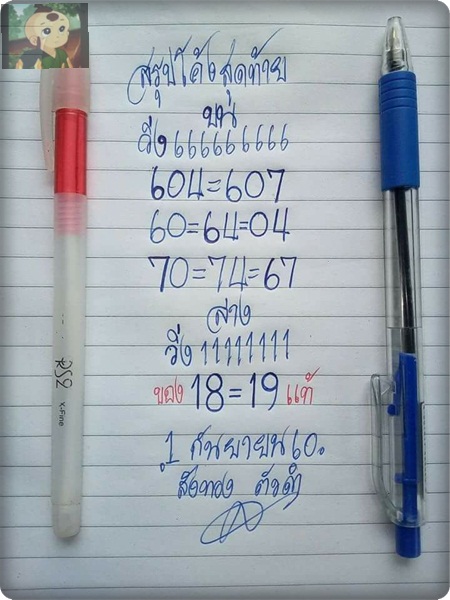 สรุปโค้งสุดท้าย
บน
วิ่ง 6666666666
604=607
60=64=04
70=74=67
ล่าง
วิ่ง 11111111
ของ 18=19 แท้
1 กันยายน 60.
สังทอง ตัวดำ
RS2
X-Fine